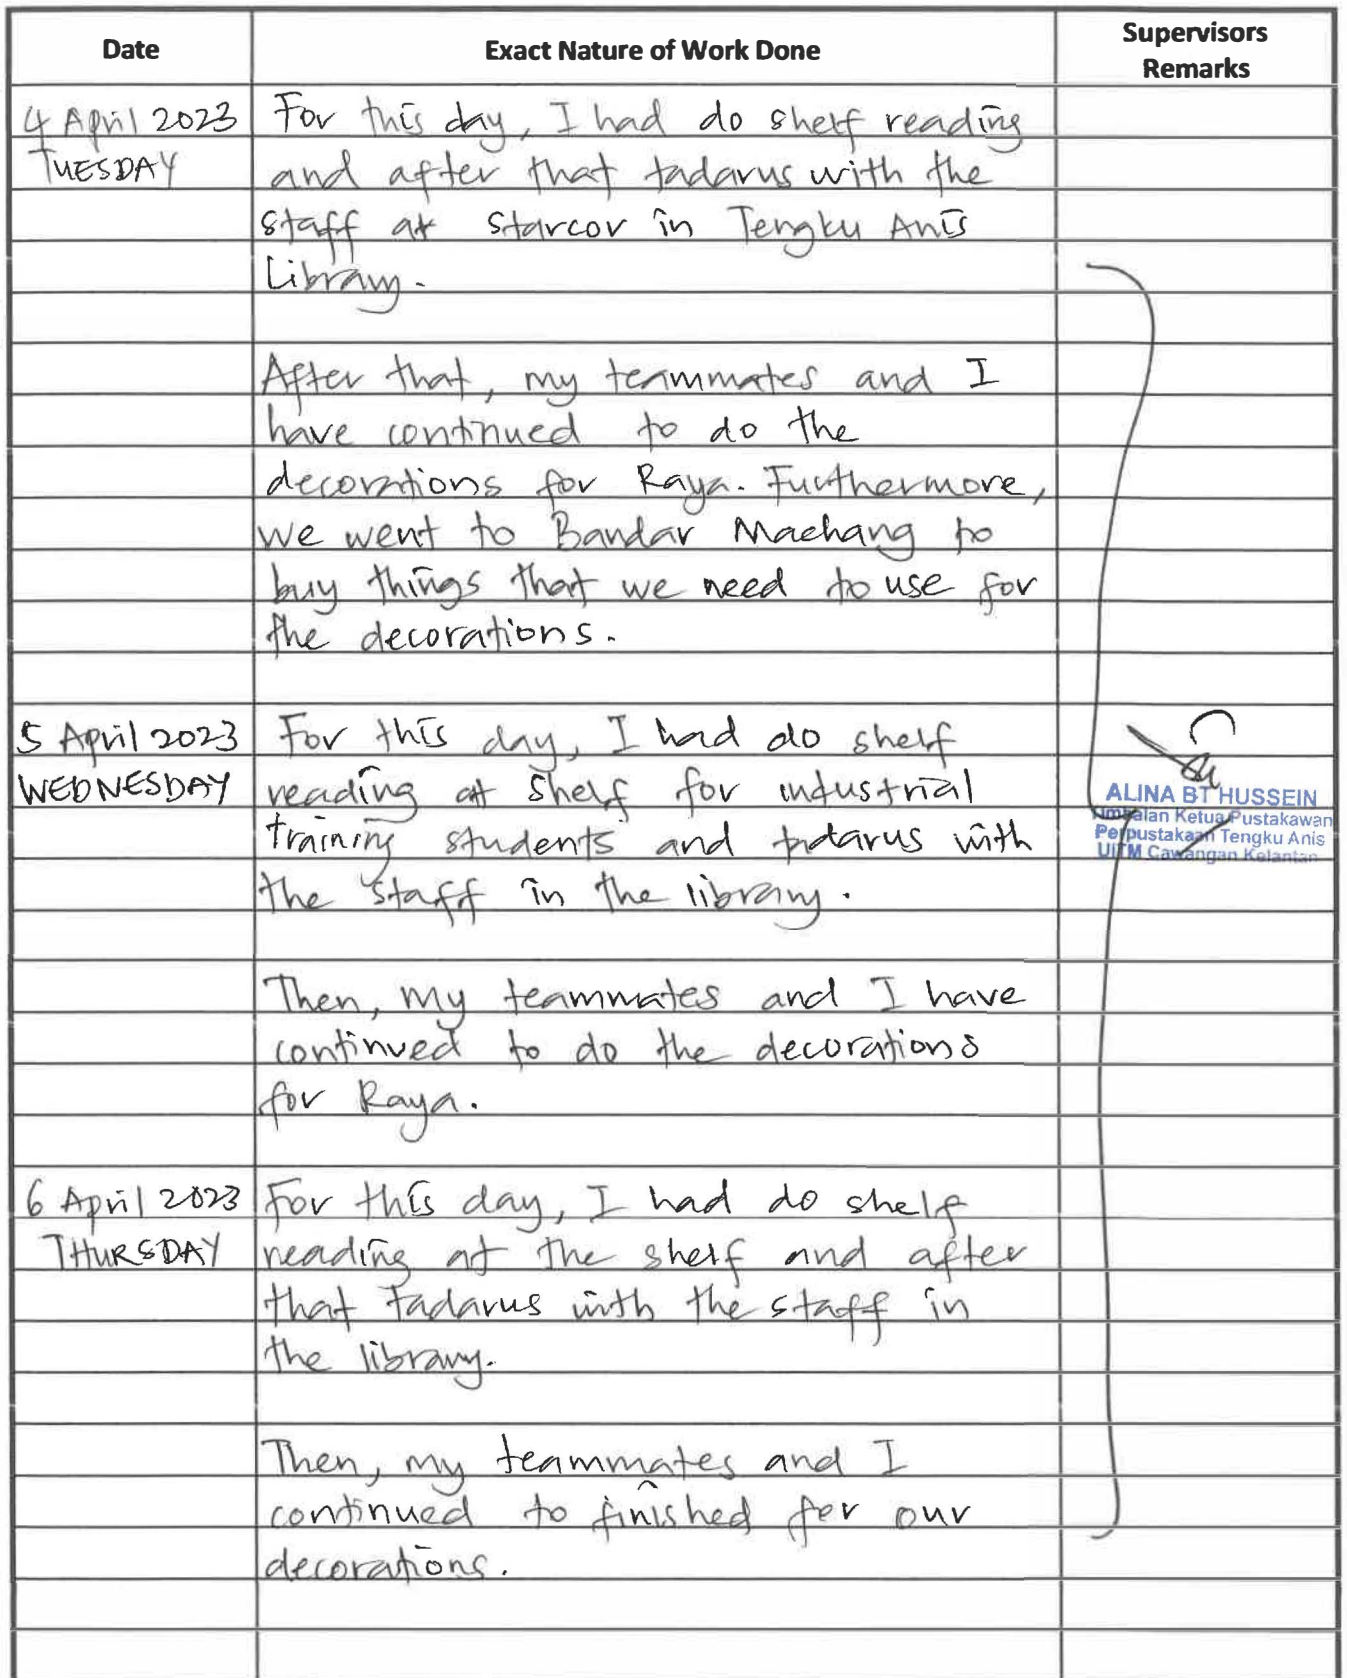 Date
Exact Nature of Work Done
Supervisors
Remarks
4 April 2023
TUESDAY
For this day, I had do shelf reading
and after that tadarus with the
staff at starcov in Tengku Anis
Library.
After that, my teammates and I
have continued to do the
decorations for Raya. Furthermore,
we went to Bandar Machang to
buy things that we need to use for
the decorations.
5 April 2023
WEDNESDAY
For this day, I had do shelf
reading at shelf for industrial
training students and tadarus with
the staff in the library.
Then, my teammates and I have
continued to do the decorations
for Raya.
ALINA BT HUSSEIN
Timbalan Ketua Pustakawan
Perpustakaan Tengku Anis
UiTM Cawangan Kelantan
6 April 2023
THURSDAY
For this day, I had do shelf
reading at the shelf and after
that tadarus with the staff in
the library.
Then, my teammates and I
continued to finished for our
decorations.